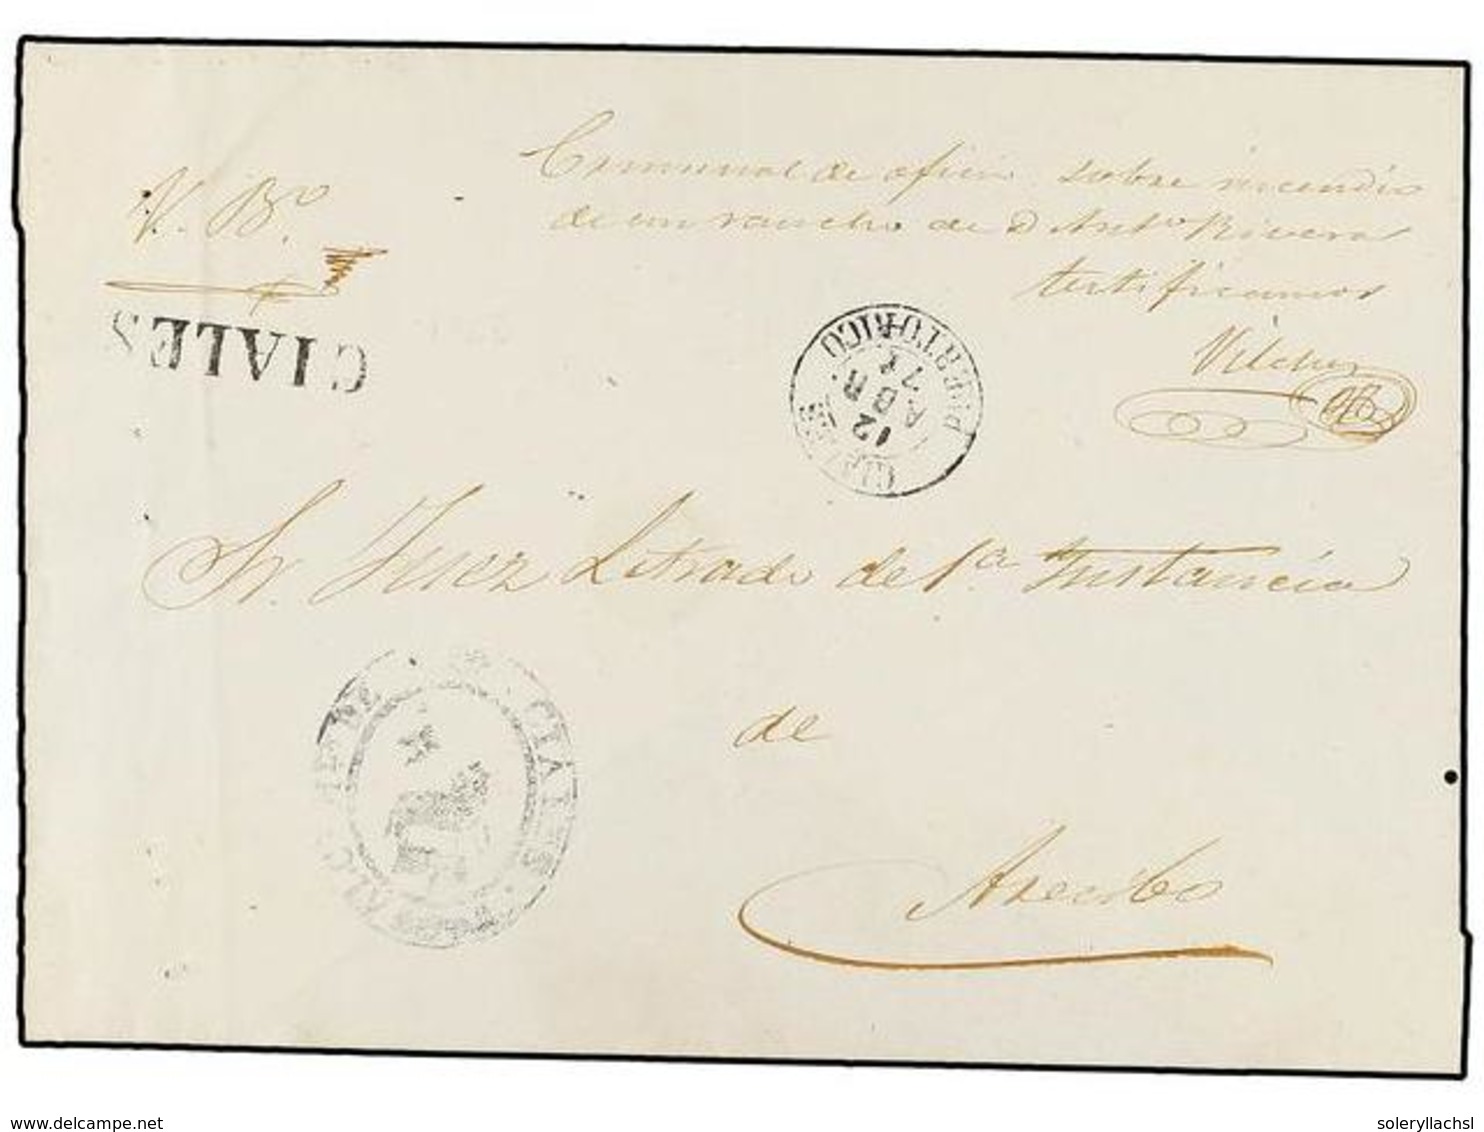 Criminal de oficio sobre incendio
de un rancho de D. Anto. Rivera
V. Bo.
Certificamos
Vilches
CIALES
PUERTO-RICO
12
ABR
CIALES
Sr. Juez Letrado de 1a. Instancia
CIALES
de
Arecibo
www.delcampe.net
soleryllachsl